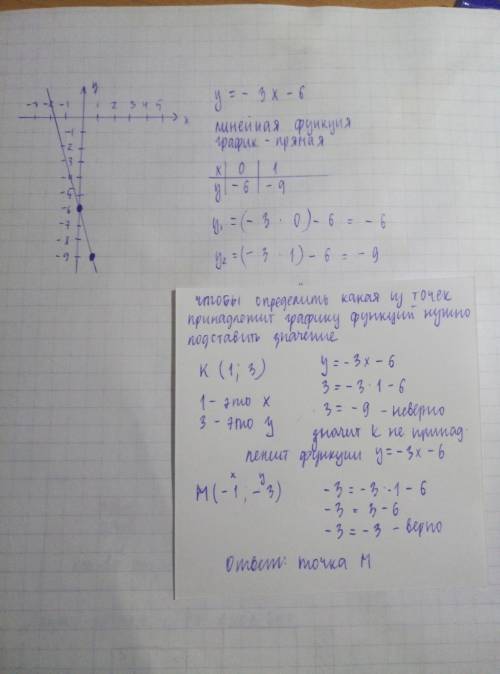 y
-3 -2 -1 1 2 3 4 5 x
-1
-2
-3
-4
-5
-6
-7
-8
-9
y = -3x - 6
линейная функция
график - прямая
x | 0 | 1
y | -6 | -9
y₁ = (-3 · 0) - 6 = -6
y₂ = (-3 · 1) - 6 = -9
чтобы определить какая из точек
принадлежит графику функций нужно
подставить значение
K (1; 3) y = -3x - 6
3 = -3 · 1 - 6
1 - это x 3 = -9 - неверно
3 - это y значит K не принад
лежит функции y = -3x - 6
x y
M (-1; -3) -3 = -3 · -1 - 6
-3 = 3 - 6
-3 = -3 - верно
Ответ: точка M